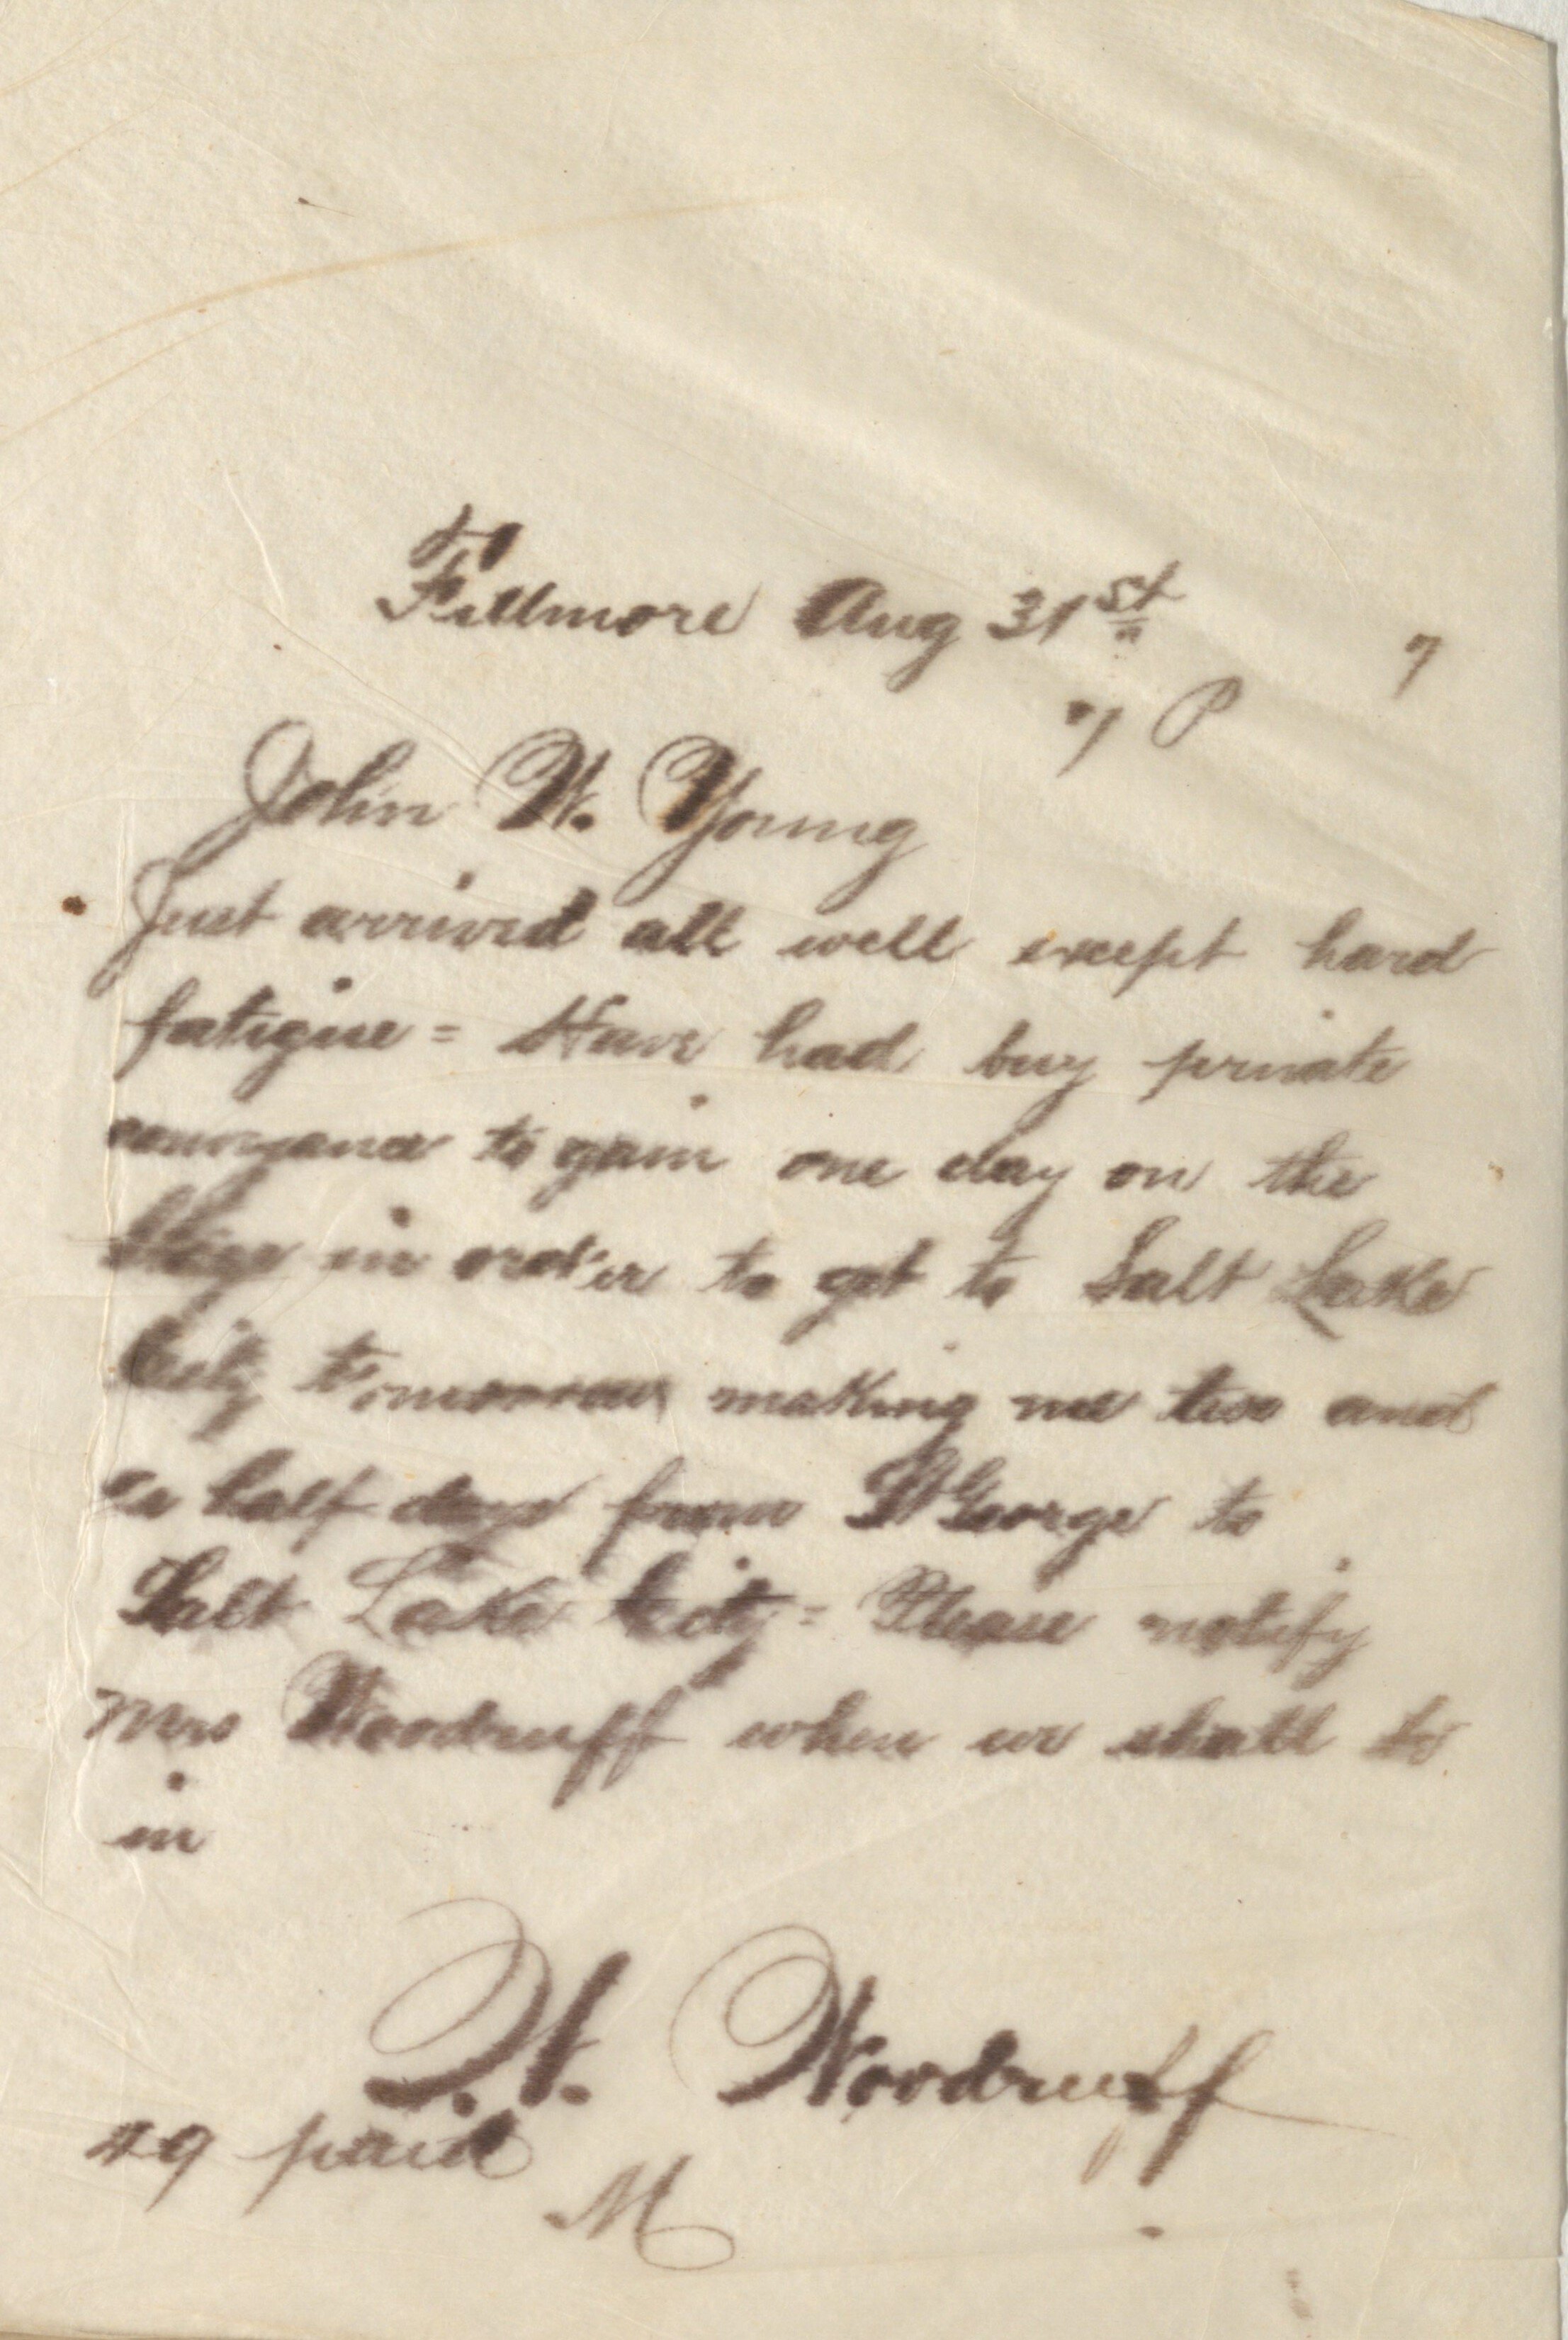 Fillmore Aug 31st
7
7 P
John W. Young
Just arrived all well except hard
fatigue = Have had buy private
conveyance to gain one day on the
Stage in order to get to Salt Lake
City tomorrow making me two and
a half days from St George to
Salt Lake City = Please notify
Mrs Woodruff when we shall be
in
W. Woodruff
49 paid
M